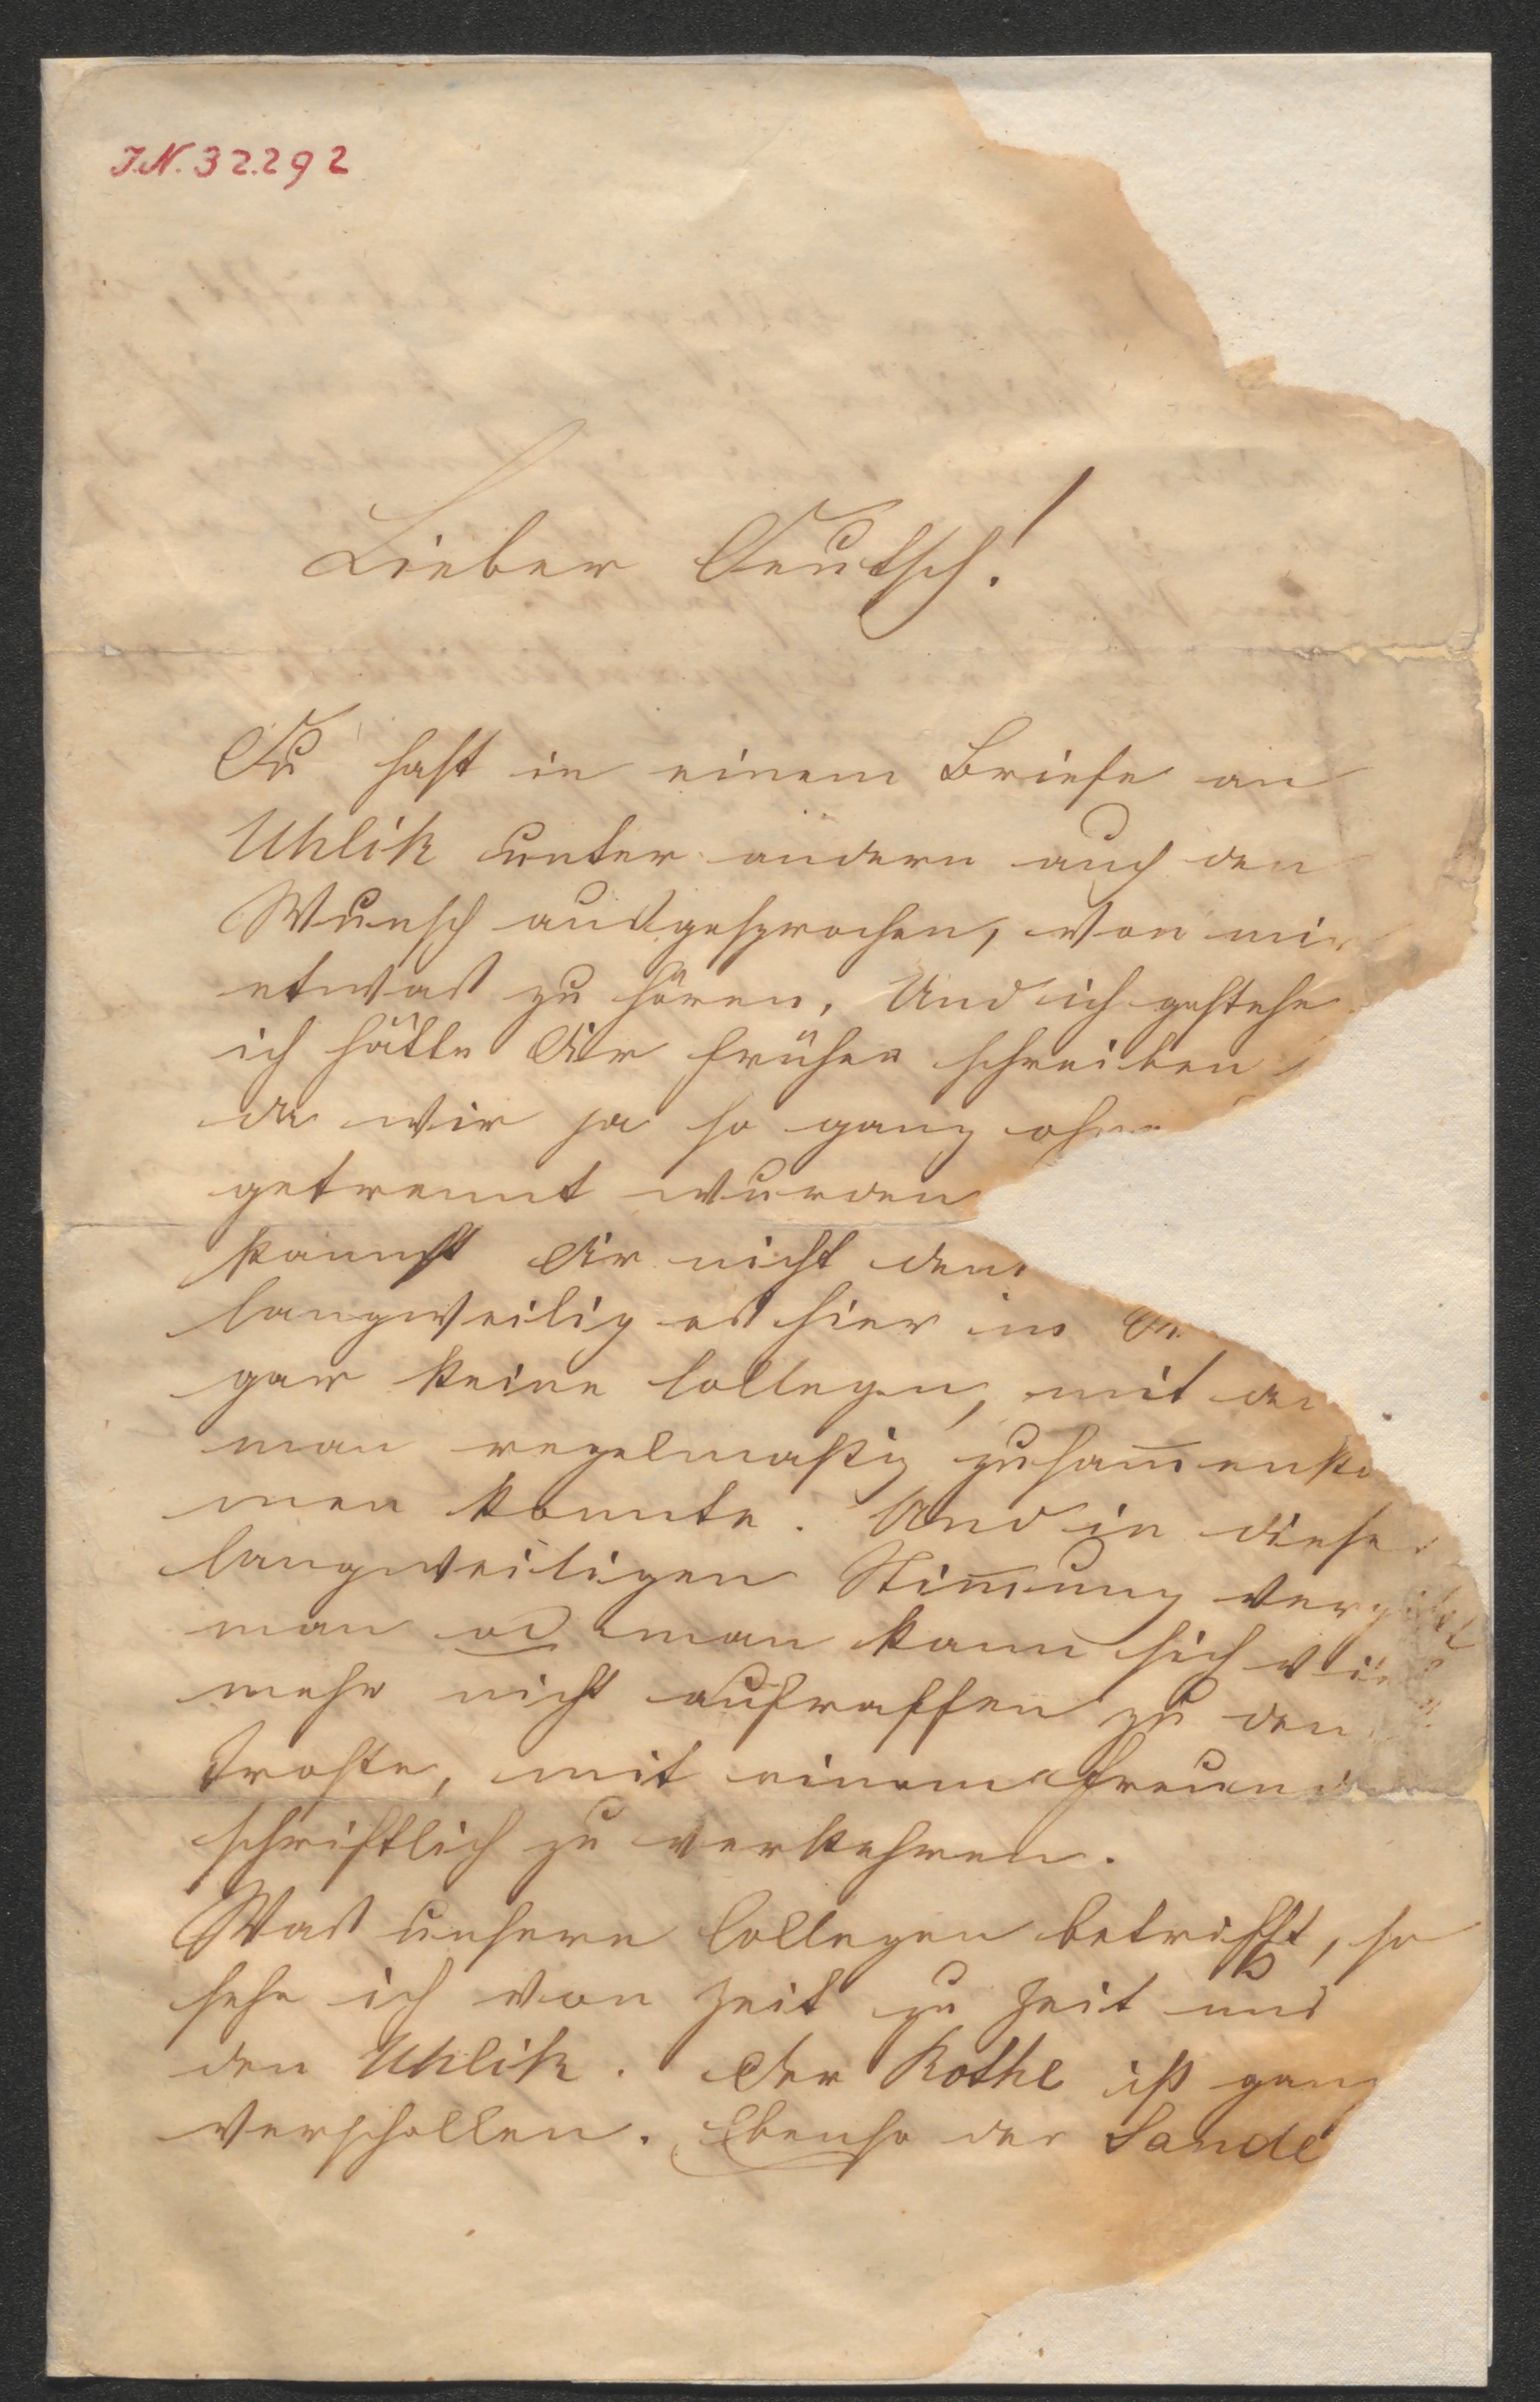 J.N. 32.292
Lieber Deutsch!
Du hast in einem Briefe an
Uhlik unter andern auch den
Wunsch ausgesprochen, von mir
etwas zu hören. Und ich gestehe
ich hätte Dir früher schreiben
da wir ja so ganz
getrennt wurden
kannst Dir nicht
langweilig es hier in
gar keine Collegen, mit
man regelmaßig zusam̄enko
men konnte. Und in diese
langweiligen Stim̄ung
man od man kann sich
mehr nicht aufraffen zu dem
Troste, mit einem Freunde
schriftlich zu verkehren.
Was unsere Collegen betrifft, so
sehe ich von Zeit zu Zeit nur
den Uhlik. Der Kothe ist ganz
verschollen. Ebenso der Sande